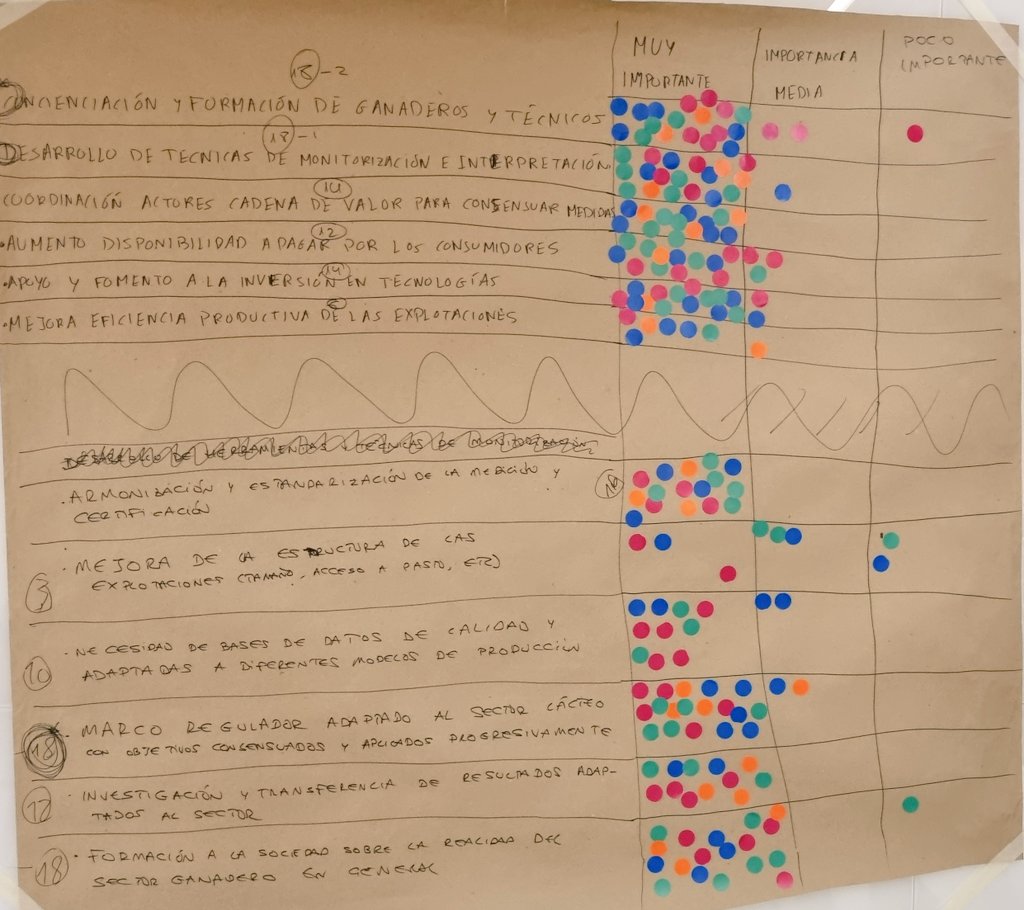 MUY IMPORTANTE
IMPORTANCIA MEDIA
POCO IMPORTANTE
18-2
CONCIENCIACIÓN Y FORMACIÓN DE GANADEROS Y TÉCNICOS
18-1
DESARROLLO DE TECNICAS DE MONITORIZACIÓN E INTERPRETACIÓN.
14
COORDINACIÓN ACTORES CADENA DE VALOR PARA CONSENSUAR MEDIDAS
12
• AUMENTO DISPONIBILIDAD A PAGAR POR LOS CONSUMIDORES
14
• APOYO Y FOMENTO A LA INVERSIÓN EN TECNOLOGÍAS
• MEJORA EFICIENCIA PRODUCTIVA DE LAS EXPLOTACIONES
DESARROLLO DE HERRAMIENTAS Y TÉCNICAS DE MONITORIZACIÓN
. ARMONIZACIÓN Y ESTANDARIZACIÓN DE LA MEDICIÓN Y
CERTIFICACIÓN
· MEJORA DE LA ESTRUCTURA DE LAS
3 EXPLOTACIONES (TAMAÑO, ACCESO A PASTO, ETC)
· NECESIDAD DE BASES DE DATOS DE CALIDAD Y
10 ADAPTADAS A DIFERENTES MODELOS DE PRODUCCIÓN
· MARCO REGULADOR ADAPTADO AL SECTOR LÁCTEO
18 CON OBJETIVOS CONSENSUADOS Y APLICADOS PROGRESIVAMENTE
· INVESTIGACIÓN Y TRANSFERENCIA DE RESULTADOS ADAP-
12 TADOS AL SECTOR
· FORMACIÓN A LA SOCIEDAD SOBRE LA REALIDAD DEL
18 SECTOR GANADERO EN GENERAL